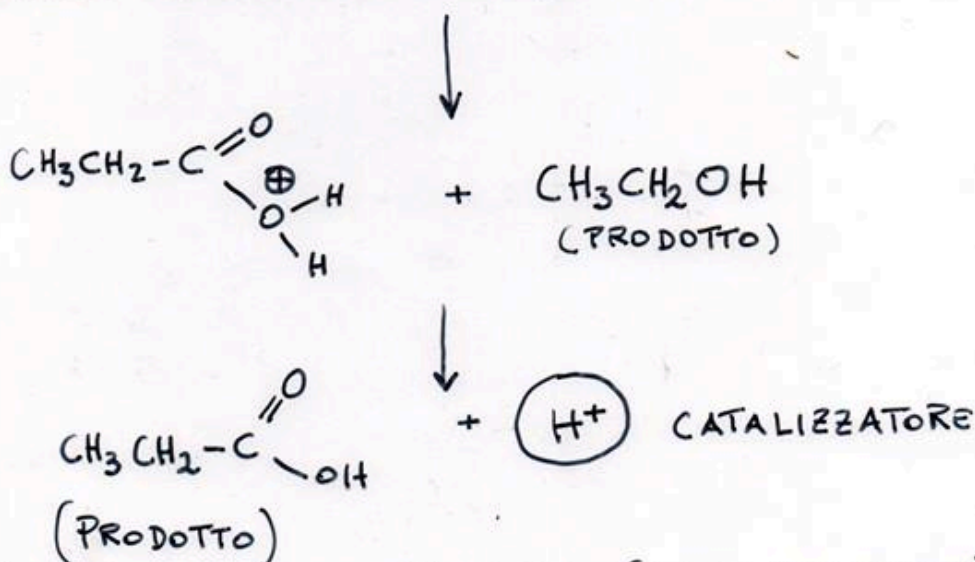 CH₃CH₂-C=O
⊕
O-H
H
+ CH₃CH₂OH
(PRODOTTO)
CH₃CH₂-C=O
OH
+ H⁺ CATALIZZATORE
(PRODOTTO)